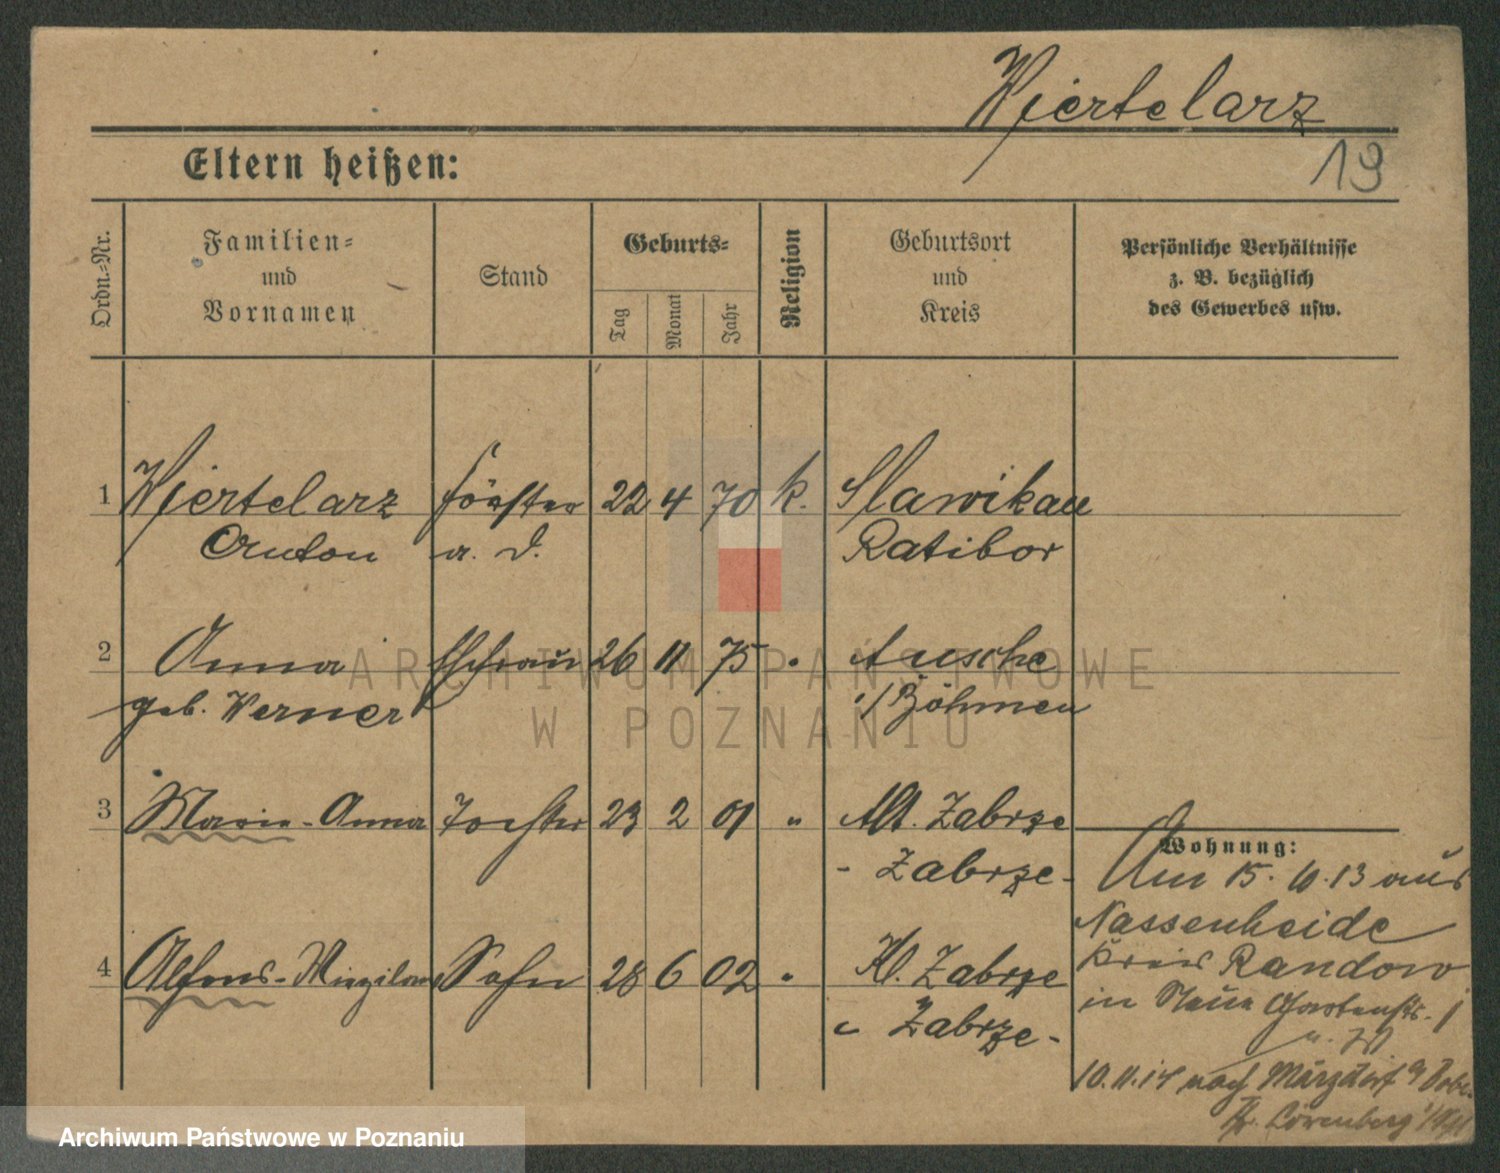 Wiertelarz
Eltern heißen:
19
Ordn.=Nr.
Familien=
und
Vornamen
Stand
Geburts=
Tag
Monat
Jahr
Religion
Geburtsort
und
Kreis
Persönliche Verhältnisse
z. B. bezüglich
des Gewerbes usw.
1 Wiertelarz Förster 22 4 70 k. Slawikau
Anton a. D. Ratibor
2 Anna Ehefrau 26 11 75 "
geb. Werner i/Böhmen
3 Marie-Anna Tochter 23 2 01 " Alt. Zabrze
- Zabrze -
Wohnung:
Am 15. 10. 13 aus
Nassenheide
Kreis Randow
in Neue Gartenstr. 1
4 Alfons- Sohn 28 6 02 " Kl. Zabrze
Zabrze -
10.11.14 nach Märzdorf a Bober
Kr. Löwenberg
ARCHIWUM PAŃSTWOWE
W POZNANIU
Archiwum Państwowe w Poznaniu